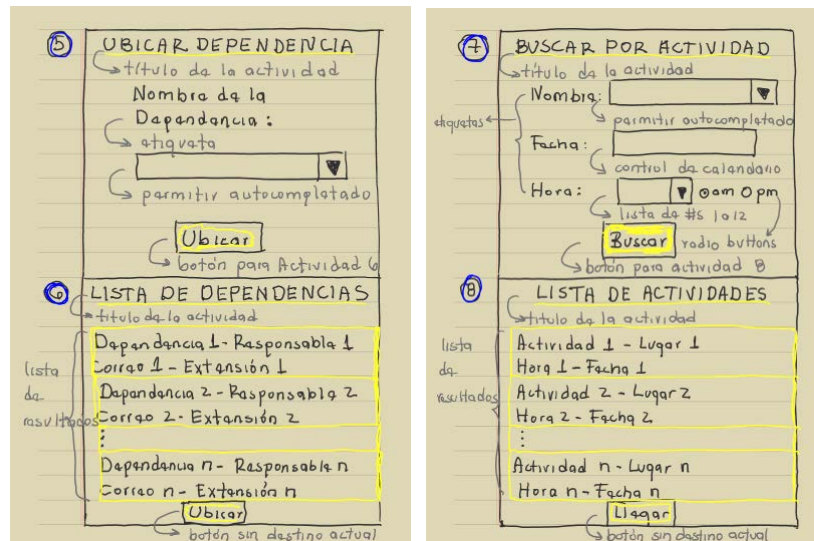 5 UBICAR DEPENDENCIA
título de la actividad
Nombre de la
Dependencia:
etiqueta
permitir autocompletado
Ubicar
botón para Actividad 6
6 LISTA DE DEPENDENCIAS
título de la actividad
lista de resultados
Dependencia 1 - Responsable 1
Correo 1 - Extensión 1
Dependencia 2 - Responsable 2
Correo 2 - Extensión 2
⋮
Dependencia n - Responsable n
Correo n - Extensión n
Ubicar
botón sin destino actual
7 BUSCAR POR ACTIVIDAD
título de la actividad
etiquetas
Nombre:
permitir autocompletado
Fecha:
control de calendario
Hora: am pm
lista de #s 1 a 12
Buscar radio buttons
botón para actividad 8
8 LISTA DE ACTIVIDADES
título de la actividad
lista de resultados
Actividad 1 - Lugar 1
Hora 1 - Fecha 1
Actividad 2 - Lugar 2
Hora 2 - Fecha 2
⋮
Actividad n - Lugar n
Hora n - Fecha n
Llegar
botón sin destino actual